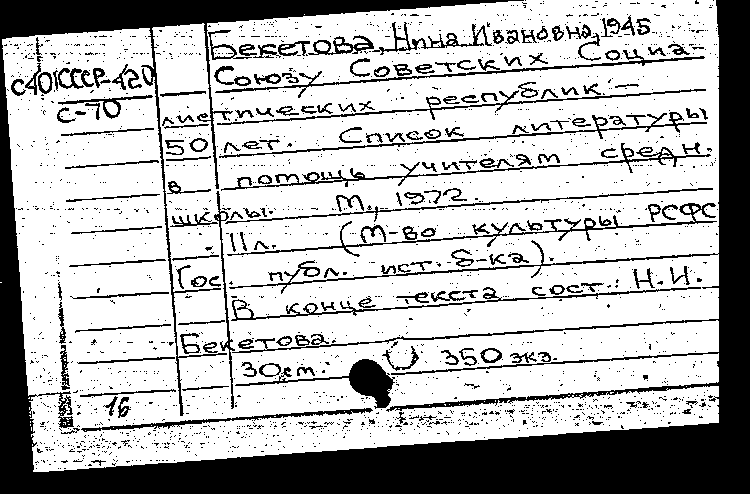 Бекетова, Нина Ивановна, 1945
С401СССР-420 Союзу Советских Социа-
С-70 листических республик —
50 лет. Список литературы
в помощь учителям средн.
школы. М., 1972.
11л. (М-во культуры РСФС
Гос. публ. ист. б-ка).
В конце текста сост.: Н.И.
Бекетова.
30см. 350 экз.
16